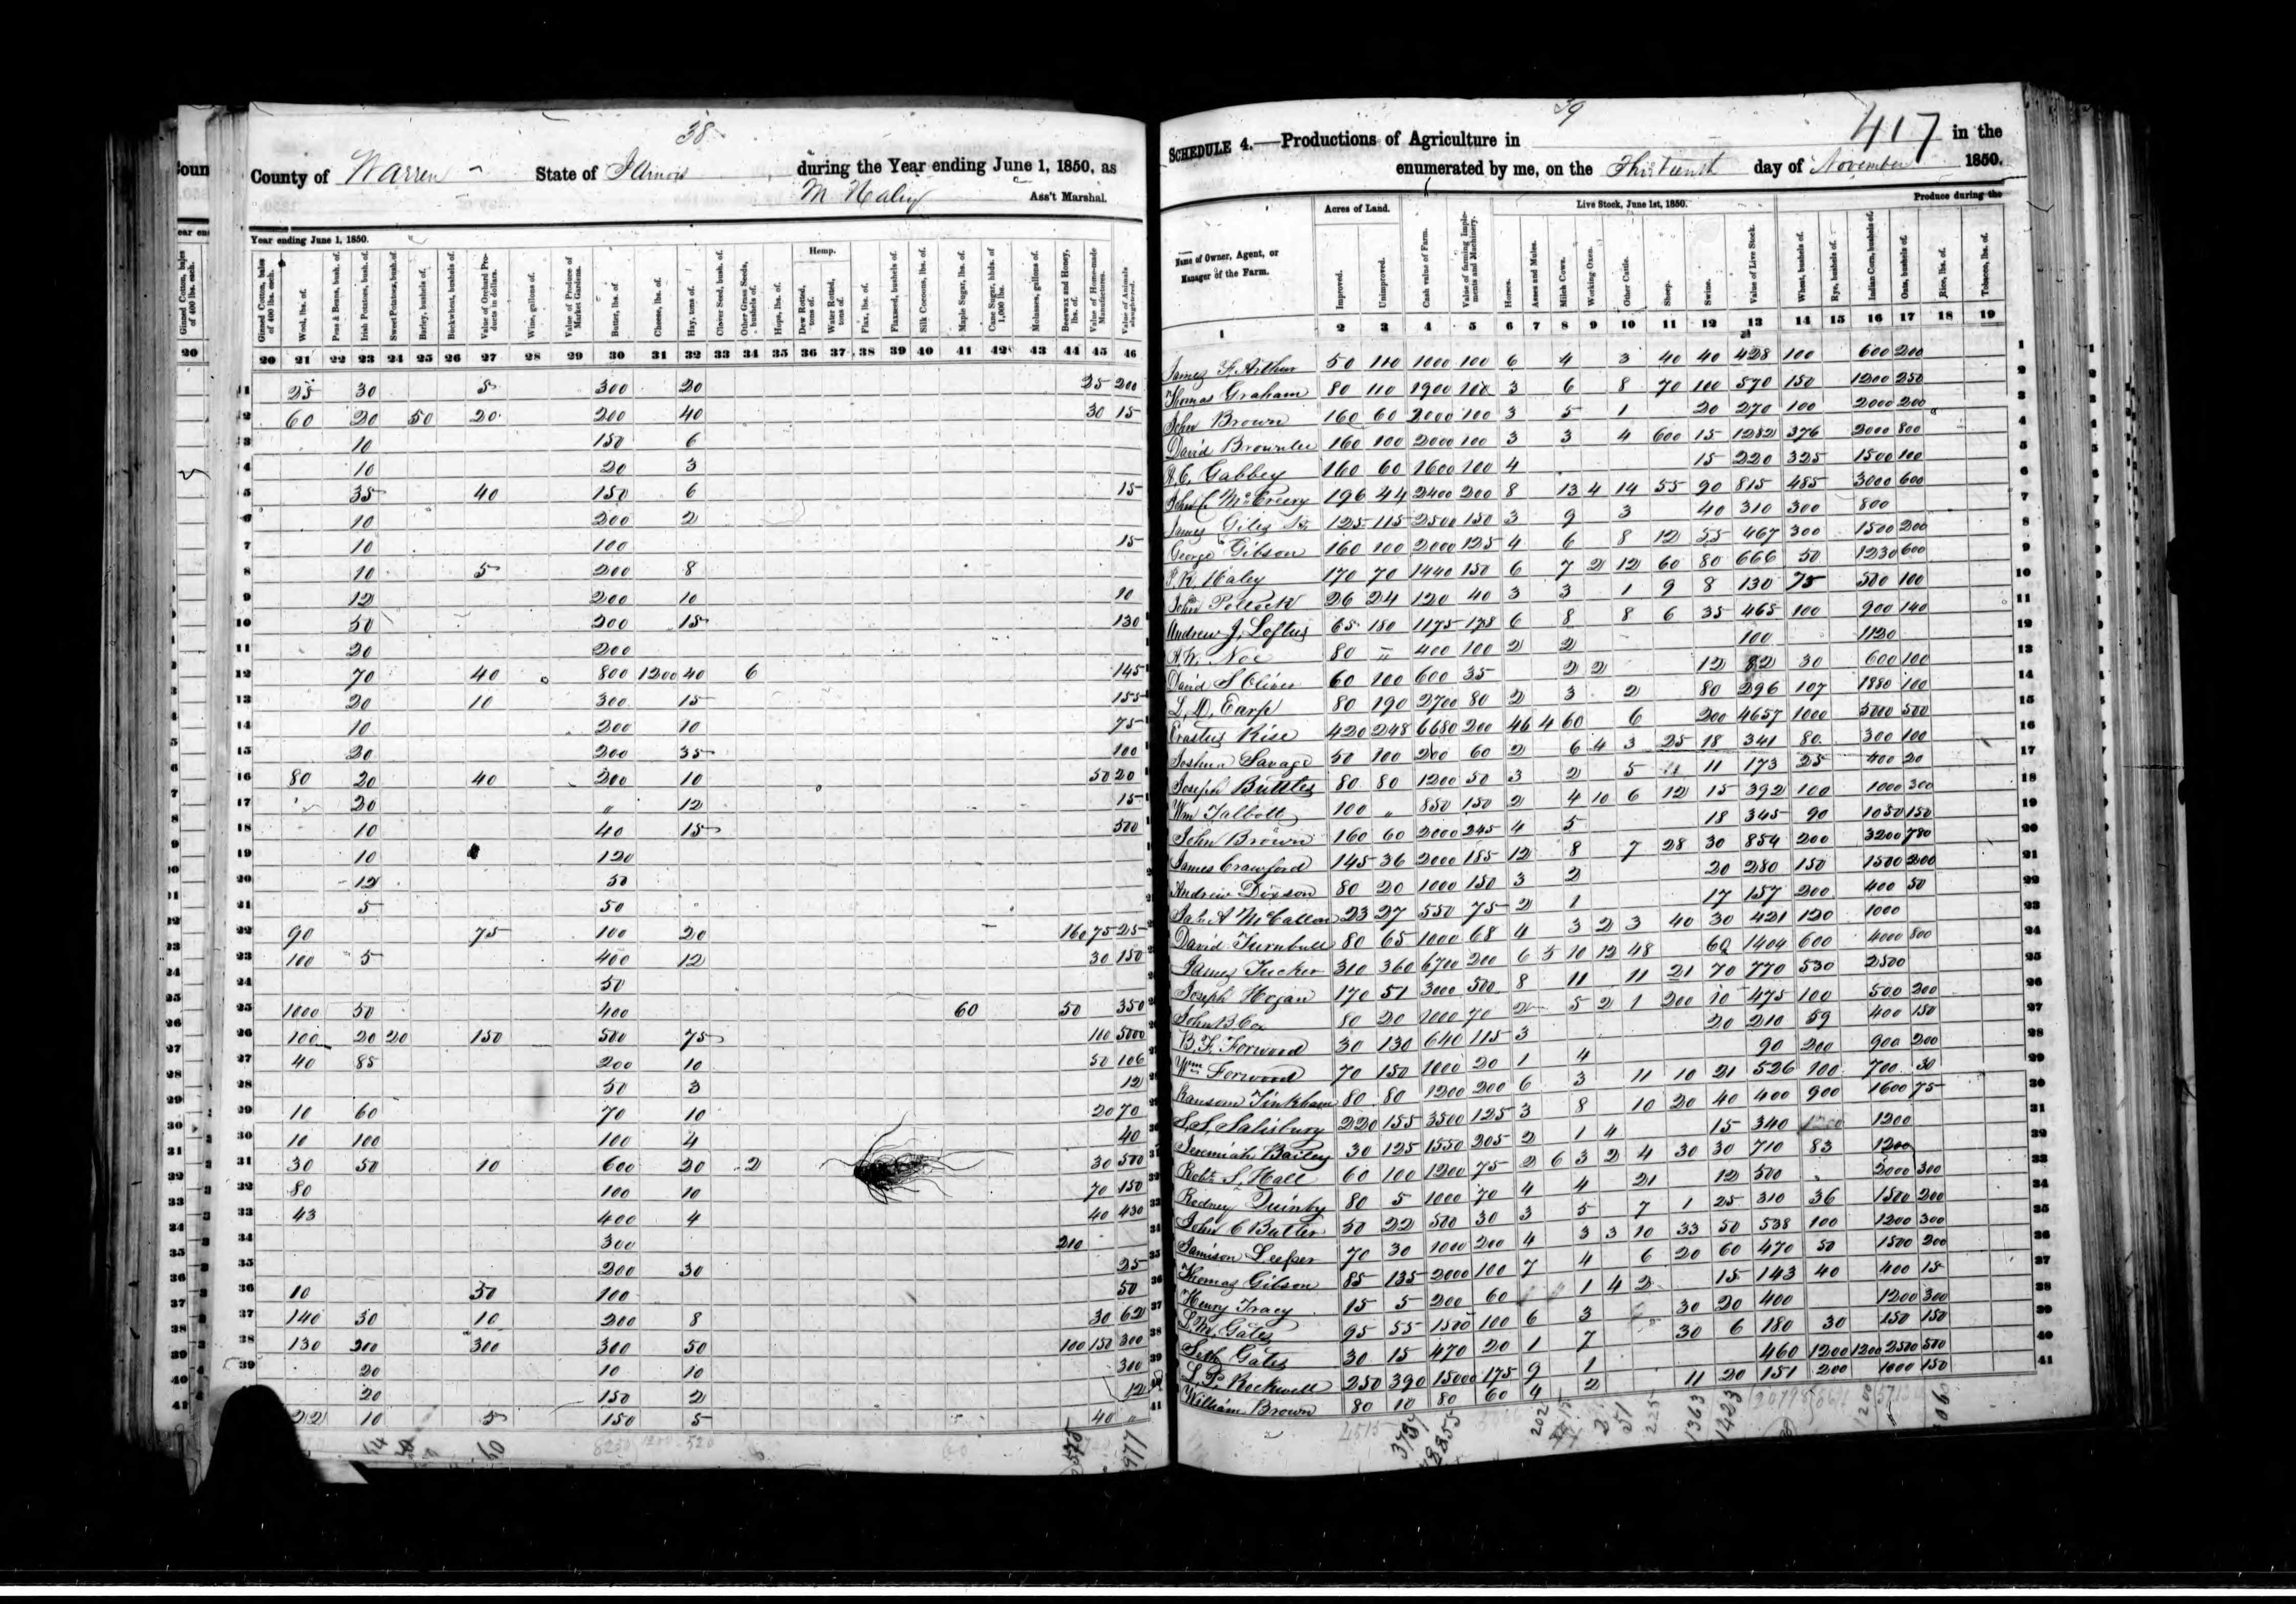 38
County of Warren State of Illinois during the Year ending June 1, 1850, as
M Haley Ass't Marshal.
Year ending June 1, 1850.
Ginned Cotton, bales of 400 lbs. each.
Wool, lbs. of.
Peas & Beans, bush. of.
Irish Potatoes, bush. of.
Sweet Potatoes, bush. of.
Barley, bushels of.
Buckwheat, bushels of.
Value of Orchard Products in dollars.
Wine, gallons of.
Value of Produce of Market Gardens.
Butter, lbs. of.
Cheese, lbs. of.
Hay, tons of.
Clover Seed, bush. of.
Other Grass Seeds, bushels of.
Hops, lbs. of.
Hemp.
Dew Rotted, tons of.
Water Rotted, tons of.
Flax, lbs. of.
Flaxseed, bushels of.
Silk Cocoons, lbs. of.
Maple Sugar, lbs. of.
Cane Sugar, hhds. of 1,000 lbs.
Molasses, gallons of.
Beeswax and Honey, lbs. of.
Value of Home-made Manufactures.
Value of Animals slaughtered.
20 21 22 23 24 25 26 27 28 29 30 31 32 33 34 35 36 37 38 39 40 41 42 43 44 45 46
1 25 30 5 300 20 25 200
2 60 20 50 20 200 40 30 15
3 10 150 6
4 10 20 3
5 35 40 150 6 15
6 10 200 2
7 10 100 15
8 10 5 200 8
9 12 200 10 10
10 50 200 15 130
11 20 200
12 70 40 800 1200 40 6 145
13 20 10 300 15 155
14 10 200 10 75
15 20 200 35 100
16 80 20 40 200 10 50 20
17 20 " 12 15
18 10 40 15 500
19 10 120
20 12 50
21 5 50
22 90 75 100 20 160 75 25
23 100 5 400 12 30 150
24 50
25 1000 50 400 60 50 350
26 100 20 20 150 500 75 110 5000
27 40 85 200 10 50 106
28 50 3 12
29 10 60 70 10 20 70
30 10 100 100 4 40
31 30 50 10 600 20 2 30 500
32 80 100 10 70 150
33 43 400 4 40 430
34 300 210
35 200 30 25
36 10 50 100 50
37 140 30 10 200 8 30 62
38 130 200 300 300 50 100 150 300
39 20 10 10 300
20 150 2 12
22 10 5 150 5 40 "
39
417
SCHEDULE 4.—Productions of Agriculture in in the
enumerated by me, on the Thirteenth day of November 1850.
Acres of Land.
Live Stock, June 1st, 1850.
Produce during the
Name of Owner, Agent, or Manager of the Farm.
Improved.
Unimproved.
Cash value of Farm.
Value of farming Implements and Machinery.
Horses.
Asses and Mules.
Milch Cows.
Working Oxen.
Other Cattle.
Sheep.
Swine.
Value of Live Stock.
Wheat, bushels of.
Rye, bushels of.
Indian Corn, bushels of.
Oats, bushels of.
Rice, lbs. of.
Tobacco, lbs. of.
1 2 3 4 5 6 7 8 9 10 11 12 13 14 15 16 17 18 19
James F. Arthur 50 110 1000 100 6 4 3 40 40 428 100 600 200
Thomas Graham 80 110 1900 100 3 6 8 70 100 570 150 1200 250
John Brown 160 60 2000 100 3 5 1 20 270 100 2000 200
David Brownlee 160 100 2000 100 3 3 4 600 15 1282 376 2000 800
R. C. Gabbey 160 60 1600 100 4 15 220 325 1500 100
John C. McCreery 196 44 2400 200 8 13 4 14 55 90 815 485 3000 600
James Giles Sr. 125 115 2500 150 3 9 3 40 310 300 800
George Gibson 160 100 2000 125 4 6 8 12 55 467 300 1500 200
P. K. Haley 170 70 1440 150 6 7 2 12 60 80 666 50 1230 600
John Pollock 26 24 120 40 3 3 1 9 8 130 75 500 100
Andrew J. Loftus 65 180 1175 178 6 8 8 6 35 465 100 900 140
A. K. Noe 80 " 400 100 2 2 100 1120
David S Oliver 60 100 600 35 2 2 12 82 30 600 100
L. D. Earp 80 190 2700 80 2 3 2 80 296 107 1880 100
Erastus Rice 420 248 6680 200 46 4 60 6 200 4657 1000 5000 500
Joshua Savage 50 100 200 60 2 6 4 3 25 18 341 80 300 100
Joseph Buttles 80 80 1200 50 3 2 5 11 11 173 25 400 20
Wm Talbott 100 " 850 150 2 4 10 6 12 15 392 100 1000 300
John Brown 160 60 2000 245 4 5 18 345 90 1050 150
James Crawford 145 36 2000 185 12 8 7 28 30 854 200 3200 780
Andrew Dixson 80 20 1000 150 3 2 20 280 150 1500 200
Jas. A McCallon 23 27 550 75 2 1 17 157 200 400 50
David Turnbull 80 65 1000 68 4 3 2 3 40 30 421 120 1000
James Tucker 310 360 6700 200 6 5 10 12 48 60 1404 600 4000 800
Joseph Hogan 170 51 3000 500 8 11 11 21 70 770 530 2500
John B Cox 80 20 1000 70 2 5 2 1 200 10 475 100 500 200
B. F. Forwood 30 130 640 115 3 20 210 59 400 150
Wm Forwood 70 150 1000 20 1 4 90 200 900 200
Ransom Tinkham 80 80 1200 200 6 3 11 10 21 526 100 700 30
S. S. Salisbury 220 155 3500 125 3 8 10 20 40 400 900 1600 75
Jeremiah Bailey 30 125 1550 205 2 1 4 15 340 1200
Robt. S. Hall 60 100 1200 75 2 6 3 2 4 30 30 710 83 1200
Rodney Quinby 80 5 1000 70 4 4 21 12 500 2000 300
John C Butler 50 22 500 30 3 5 7 1 25 310 36 1500 200
Jamison Leeper 70 30 1000 200 4 3 3 10 33 50 538 100 1200 300
Thomas Gibson 85 135 2000 100 7 4 6 20 60 470 50 1500 200
Henry Tracy 15 5 200 60 1 4 2 15 143 40 400 15
S. M. Gates 95 55 1500 100 6 3 30 20 400 1200 300
Seth Gates 30 15 470 20 1 7 30 6 180 30 150 150
L. P. Rockwell 250 390 15000 175 9 1 460 1200 1200 2500 500
William Brown 80 10 80 60 4 2 11 20 151 200 1000 150